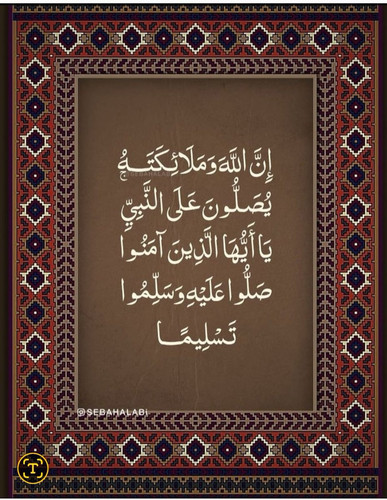 إِنَّ اللَّهَ وَمَلَائِكَتَهُ
يُصَلُّونَ عَلَى النَّبِيِّ
يَا أَيُّهَا الَّذِينَ آمَنُوا
صَلُّوا عَلَيْهِ وَسَلِّمُوا
تَسْلِيمًا
@SEBAHALABI
T